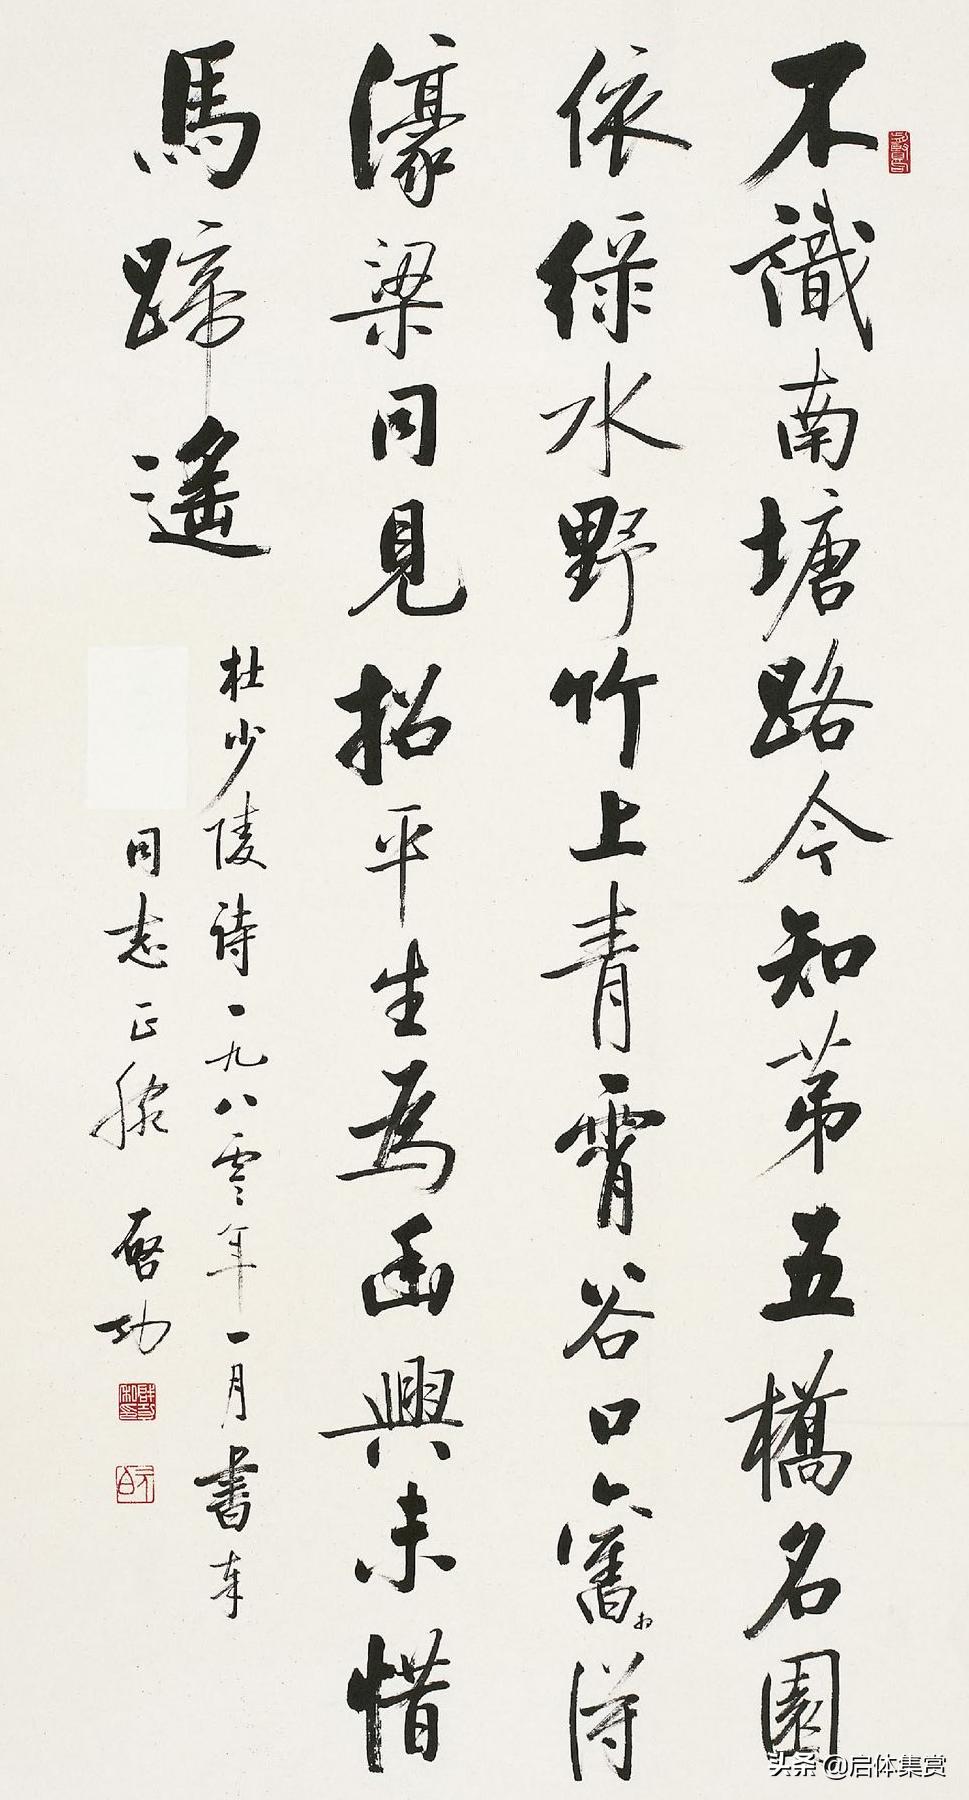 不識南塘路今知苐五橋名園
依綠水野竹上青霄谷口舊相得
濠梁同見招平生為幽興未惜
馬蹄遙
杜少陵詩一九八零年一月書奉
同志正腕 啓功
啓功私印
元白
头条 @启体集赏